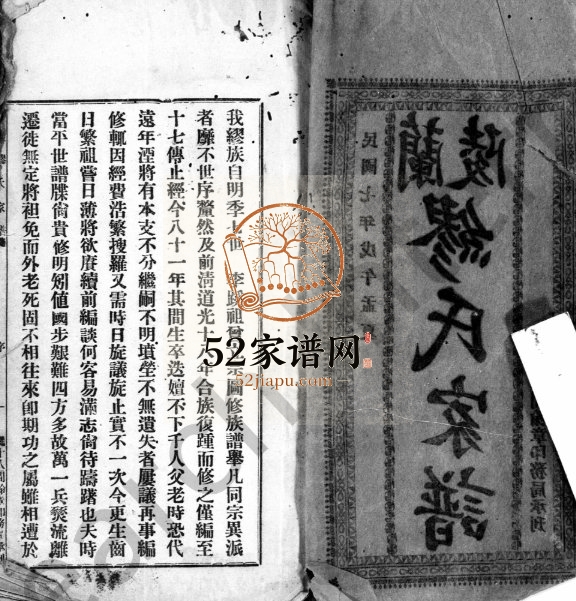 蘭陵
繆氏家譜
民國七年戊午孟
印務局承刊
我繆族自明季
宗圖修族譜舉凡同宗異派
者靡不世序釐然及前清道光十八年合族復踵而修之僅編至
十七傳止經今八十一年其間生卒迭嬗不下千人父老時恐代
遠年湮將有本支不分繼嗣不明墳塋不無遺失者屢議再事編
修輒因經費浩繁搜羅又需時日旋議旋止實不一次今更生齒
日繁祖嘗日薄將欲賡續前編談何容易滿志尙待躊躇也夫時
當平世譜牒尙貴修明矧値國步艱難四方多故萬一兵燹流離
遷徙無定將袒免而外老死固不相往來卽期功之屬雖相遭於
序
52家谱网
52jiapu.com